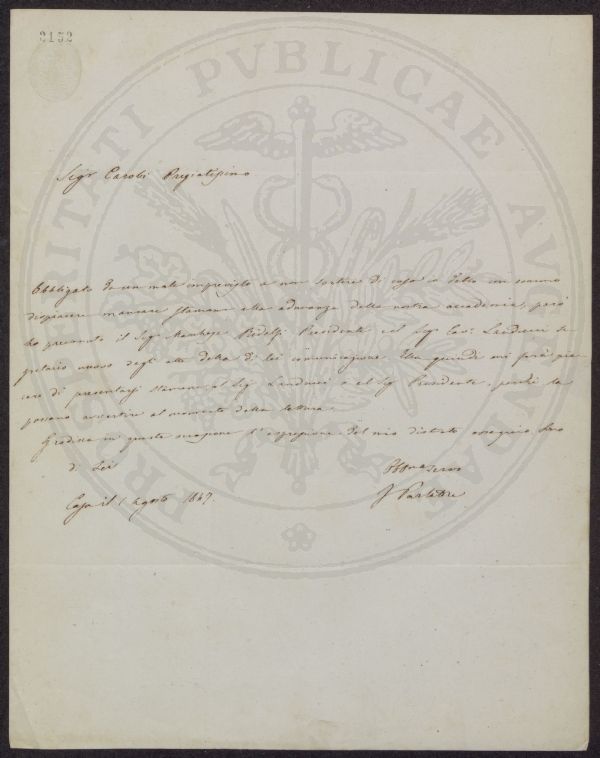 2152
PROSPERITATI PVBLICAE AVGENDAE
Sigr Carobi Pregiatissimo
Obbligato da un male imprevisto a non sortire di casa e letto con sommo
dispiacere mancare stamane alla adunanza della nostra accademia, però
ho prevenuto il Sigr Marchese Ridolfi Presidente ed il Sigr Cav. Landucci Se
gretario nuovo degli atti della di lei comunicazione. Ella quindi mi farà pia
cere di presentarsi stamane al Sigr Landucci o al Sigr Presidente, perchè la
possano avvertire al momento della lettura.
Gradisca in questa occasione l'espressione del mio distinto ossequio Sono
di Lei
Casa il 1 agosto 1847.
servo
Parlatore